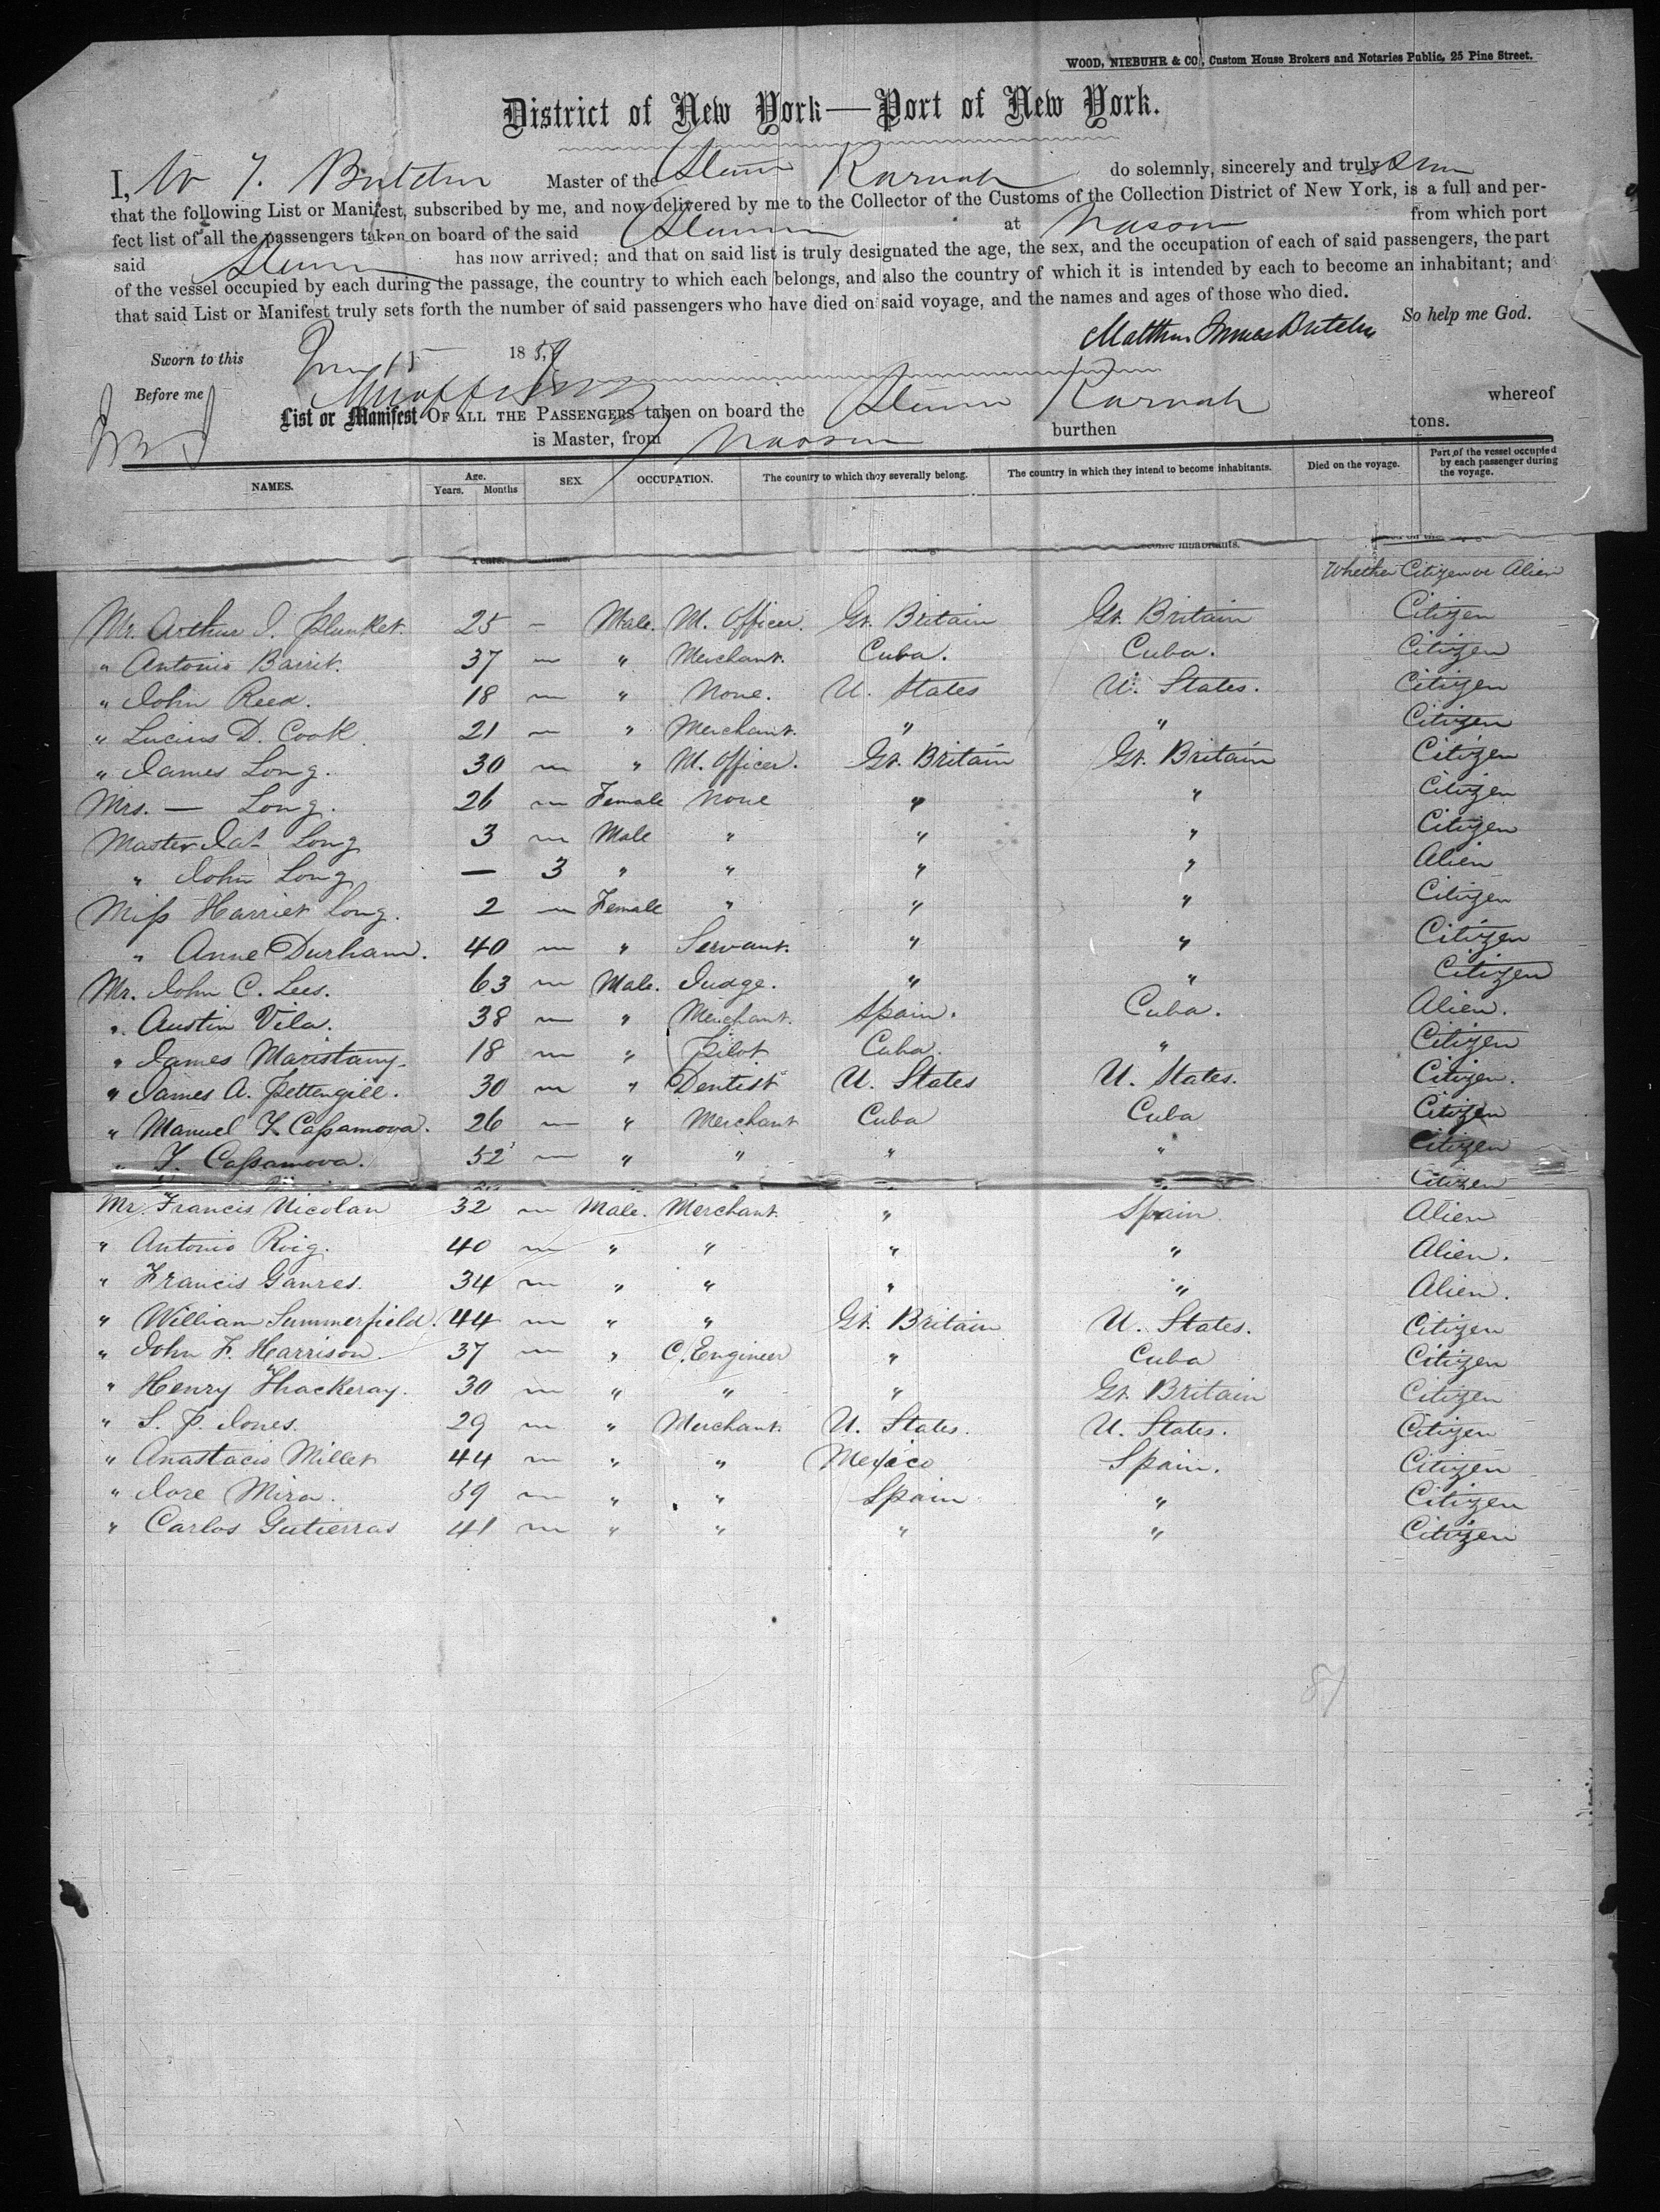 WOOD, NIEBUHR & CO., Custom House Brokers and Notaries Public, 25 Pine Street.
District of New York—Port of New York.
I, Master of the Karnak do solemnly, sincerely and truly
that the following List or Manifest, subscribed by me, and now delivered by me to the Collector of the Customs of the Collection District of New York, is a full and per-
fect list of all the passengers taken on board of the said Steamer at Nassau from which port
said Steamer has now arrived: and that on said list is truly designated the age, the sex, and the occupation of each of said passengers, the part
of the vessel occupied by each during the passage, the country to which each belongs, and also the country of which it is intended by each to become an inhabitant; and
that said List or Manifest truly sets forth the number of said passengers who have died on said voyage, and the names and ages of those who died.
So help me God.
Sworn to this 15 1859
Before me
List or Manifest OF ALL THE PASSENGERS taken on board the Steamer Karnak whereof
is Master, from Nassau burthen tons.
NAMES. Age. Years. Months SEX OCCUPATION. The country to which they severally belong. The country in which they intend to become inhabitants. Died on the voyage. Part of the vessel occupied by each passenger during the voyage.
Whether Citizen or Alien
Mr. Arthur J. Plunket. 25 - Male. M. Officer. Gt. Britain Gt. Britain Citizen
" Antonio Barrit. 37 — " Merchant. Cuba. Cuba. Citizen
" John Reed. 18 — " None. U. States U. States. Citizen
" Lucius D. Cook. 21 — " Merchant. " " Citizen
" James Long. 30 — " M. Officer. Gt. Britain Gt. Britain Citizen
Mrs. — Long. 26 — Female None " " Citizen
Master Jas Long 3 — Male " " " Citizen
" John Long — 3 " " " " Alien
Miss Harriet Long. 2 — Female " " " Citizen
" Anne Durham. 40 — " Servant. " " Citizen
Mr. John C. Lees. 63 — Male. Judge. " " Citizen
" Austin Vila. 38 — " Merchant. Spain. Cuba. Alien.
" James Maristany. 18 — " Pilot Cuba. " Citizen
" James A. Pettengill. 30 — " Dentist U. States U. States. Citizen.
" Manuel F. Cassamova. 26 — " Merchant Cuba Cuba Citizen
" F. Cassamova. 52 — " " " " Citizen
Citizen
Mr. Francis Nicolau 32 — Male. Merchant. " Spain. Alien
" Antonio Roig. 40 — " " " " Alien.
" Francis Ganres. 34 — " " " " Alien.
" William Summerfield. 44 — " " Gt. Britain U. States. Citizen
" John F. Harrison. 37 — " C. Engineer " Cuba Citizen
" Henry Thackeray. 30 — " " " Gt. Britain Citizen
" S. P. Jones. 29 — " Merchant. U. States. U. States. Citizen
" Anastacio Millet 44 — " " Mexico Spain. Citizen
" Jose Mira. 39 — " " Spain " Citizen
" Carlos Gutierras 41 — " " " " Citizen